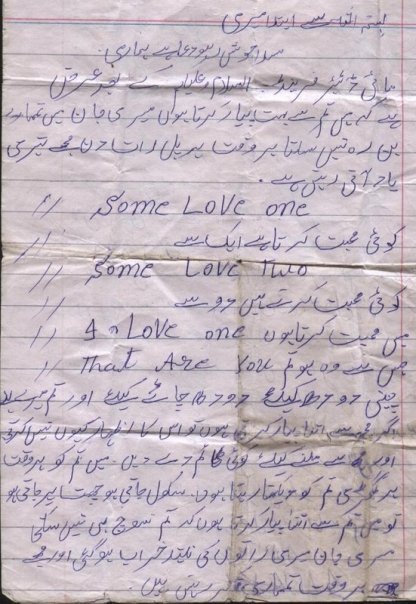 ہے ابتدا میری
سدا خوش رہو دعا ہے ہماری
مائی ڈئیر فرینڈ۔ السلام علیکم کے بعد عرض
ہے کہ میں تم سے بہت پیار کرتا ہوں میری جان میں تمہارے
بن رہ نہیں سکتا ہر وقت ہر پل رات دن مجھے تیری
یاد آتی رہتی ہے۔
Some Love one //
کوئی محبت کرتا ہے ایک سے //
Some Love Two //
کوئی محبت کرتے ہیں دو سے //
I Love one //
میں محبت کرتا ہوں //
That Are You //
جس سے وہ ہو تم //
چینی دودھ کیلئے دودھ چائے کیلئے اور تم میرے لئے
اتنا پیار کرتی ہوں تو اس کا اظہار کیوں نہیں کرتی
اور مجھ سے ملنے کیلئے کوئی ٹائم دے دیں۔ میں تم کو ہر وقت
ہر گھڑی تم کو دیکھتا رہتا ہوں۔ سکول جاتی ہو چھت پر جاتی ہو
تو میں تم سے اتنا پیار کرتا ہوں کہ تم سوچ بھی نہیں سکتی
میری جان میری راتوں کی نیند خراب ہو گئی اور مجھے
ہر وقت تمہاری رہتی ہیں۔